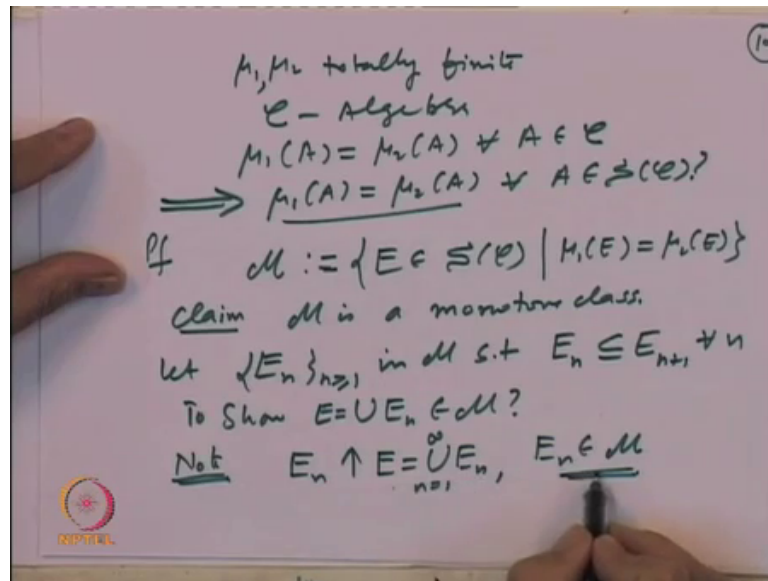 10
μ₁, μ₂ totally finite
𝒞 – Algebra
μ₁(A) = μ₂(A) ∀ A ∈ 𝒞
⟹ μ₁(A) = μ₂(A) ∀ A ∈ S(𝒞)?
Pf M := {E ∈ S(𝒞) | μ₁(E) = μ₂(E)}
Claim M is a monotone class.
Let {Eₙ}ₙ≥₁ in M s.t Eₙ ⊆ Eₙ₊₁ ∀ n
To Show E = ∪ Eₙ ∈ M?
Note Eₙ ↑ E = ∪ₙ₌₁^∞ Eₙ, Eₙ ∈ M
NPTEL